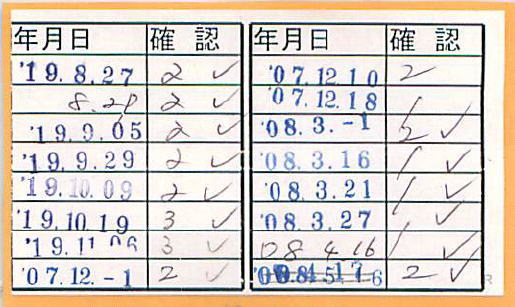 年月日 確認
'19.8.27 2 ✓
8.29 2 ✓
'19.9.05 2 ✓
'19.9.29 2 ✓
'19.10.09 2 ✓
'19.10.19 3 ✓
'19.11.06 3 ✓
'07.12.-1 2 ✓
年月日 確認
'07.12.10 2
'07.12.18 1
'08.3.-1 2 ✓
'08.3.16 1 ✓
'08.3.21 1 ✓
'08.3.27 1 ✓
08 4 16 1 ✓
2 ✓